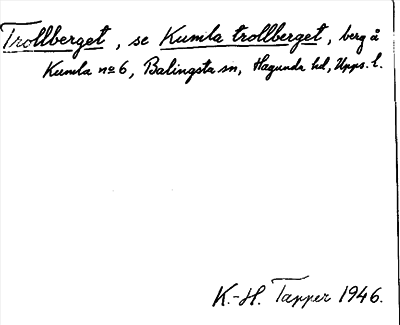 Trollberget, se Kumla trollberget, berg å
Kumla no 6, Balingsta sn, Hagunda hd, Upps. l.
K.-H. Tapper 1946.